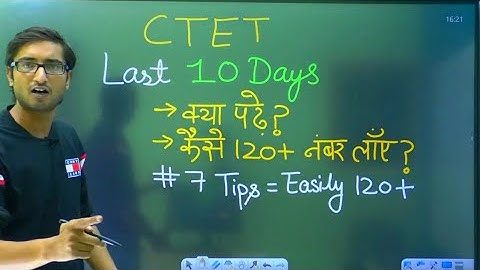 16:21
CTET
Last 10 Days
→ क्या पढ़े?
→ कैसे 120+ नंबर लाँए?
# 7 Tips = Easily 120+